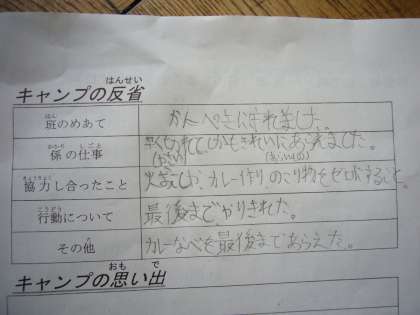 はんせい
キャンプの反省
はん
班のめあて
かんぺきに守れました。
かかり しごと
係の仕事
早くできて しかもきれいにあらえました。
きょうりょく
協力し合ったこと
火おこし、カレー作り、のこり物をゼロにすること。
こうどう
行動について
最後までやりきれた。
た
その他
カレーなべを最後まであらえた。
おも で
キャンプの思い出